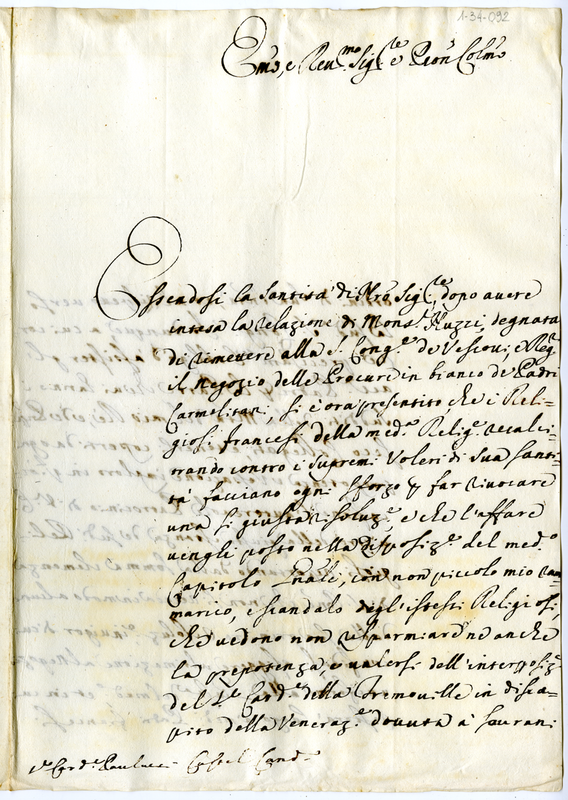 1-34-092
Emo, e Reu.mo Sig.re e Pron Colmo
Essendosi la Santità di Nro Sig.re, dopo auere
intesa la relazione di Mons.r Nuzzi, degnata
di rimettere alla S. Cong.e de Vescoui, e Reg.
il negozio delle Procure in bianco de Padri
Carmelitani, si è ora presentito, che i Reli-
giosi francesi della med.a Relig.e recalci-
trando contro i Supremi Voleri di Sua Santi-
tà facciano ogni sforzo p far riuocare
una si giusta risoluz.e, e che l'affare
uenghi posto nella disposiz.e del med.o
Capitolo Gnale, con non piccolo mio ram
marico, e scandalo degl'istessi Religiosi,
che uedono non risparmiardne anche
la prepotenza, e ualersi dell'interposiz.e
del S.re Card.e della Tremouille in disca-
pito della Veneraz.e douuta à sourani
S.r Card.e Paulucci Castel Gand.o